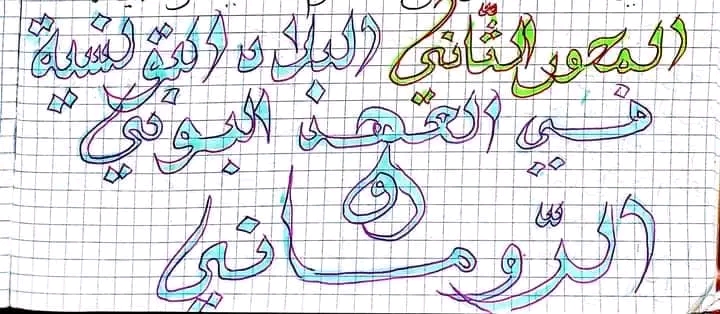 المحور الثّاني البلاد التونسية
في العهد البوني
و
الرّوماني